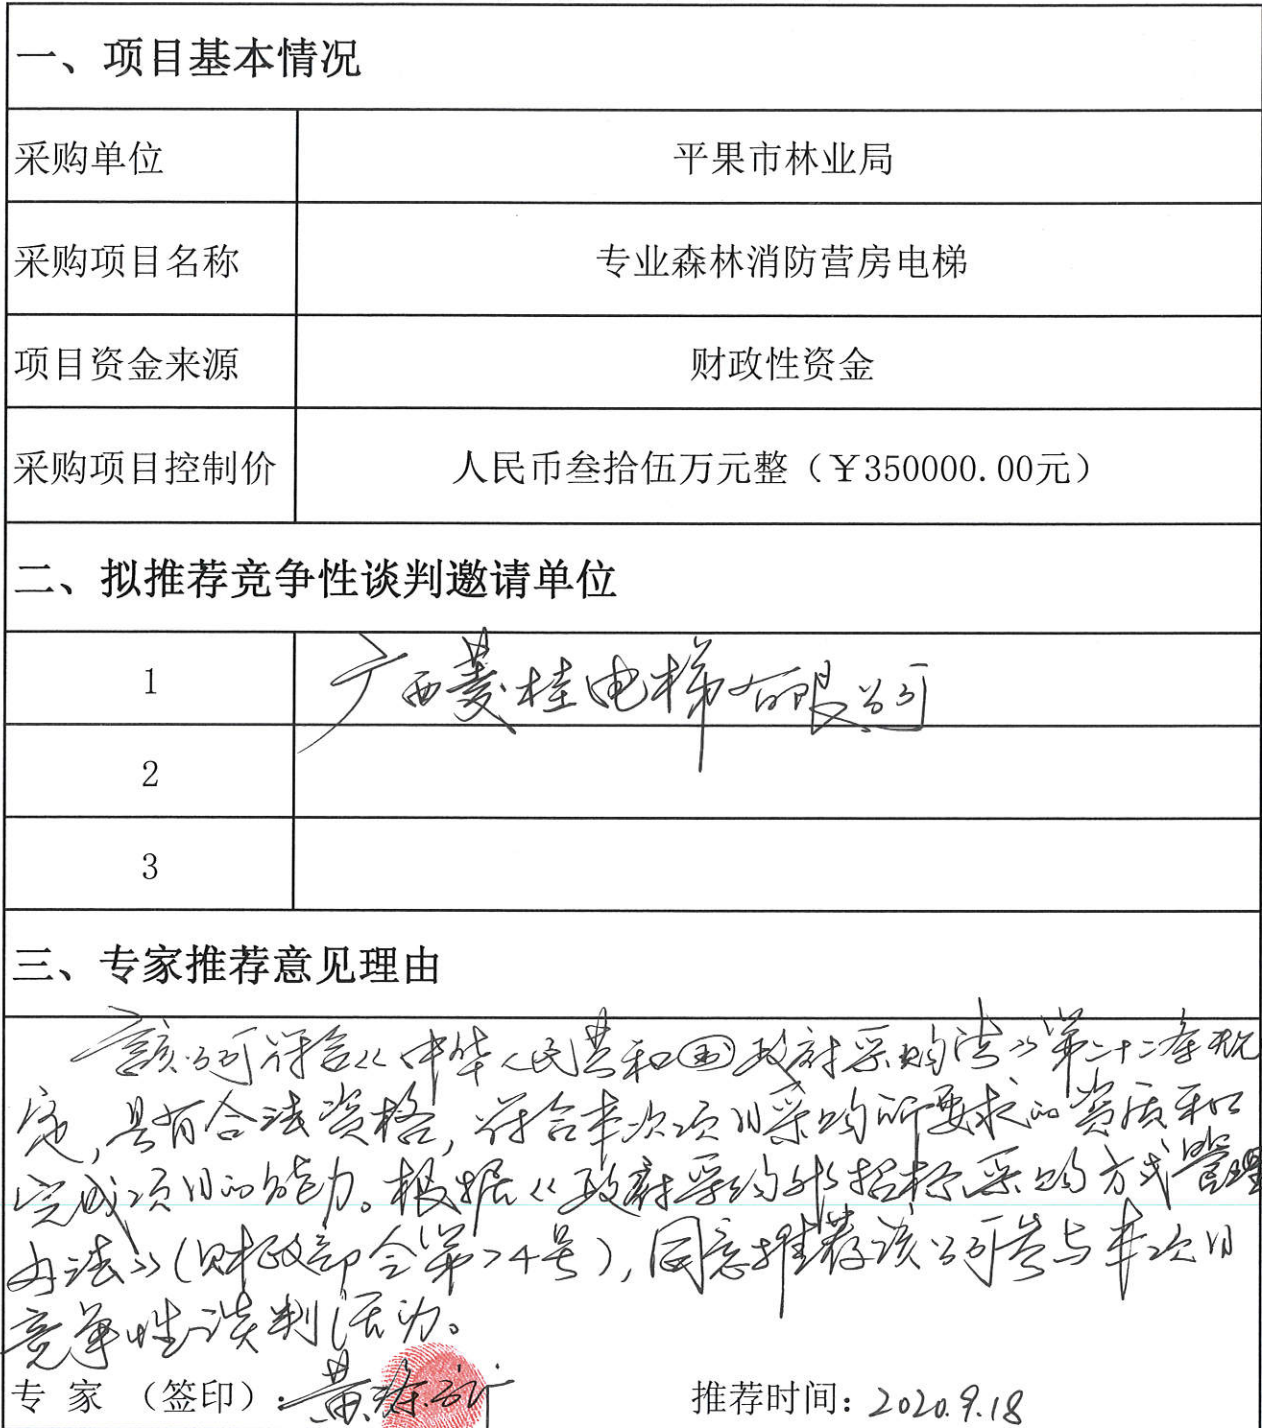 一、项目基本情况
采购单位 平果市林业局
采购项目名称 专业森林消防营房电梯
项目资金来源 财政性资金
采购项目控制价 人民币叁拾伍万元整（￥350000.00元）
二、拟推荐竞争性谈判邀请单位
1 广西菱桂电梯有限公司
2
3
三、专家推荐意见理由
该公司符合《中华人民共和国政府采购法》第二十二条规
定,具有合法资格,符合本次项目采购所要求的资质和
完成项目的能力。根据《政府采购非招标采购方式管理
办法》(财政部令第74号),同意推荐该公司参与本次项目
竞争性谈判活动。
专 家 （签印）: 黄 推荐时间: 2020.9.18